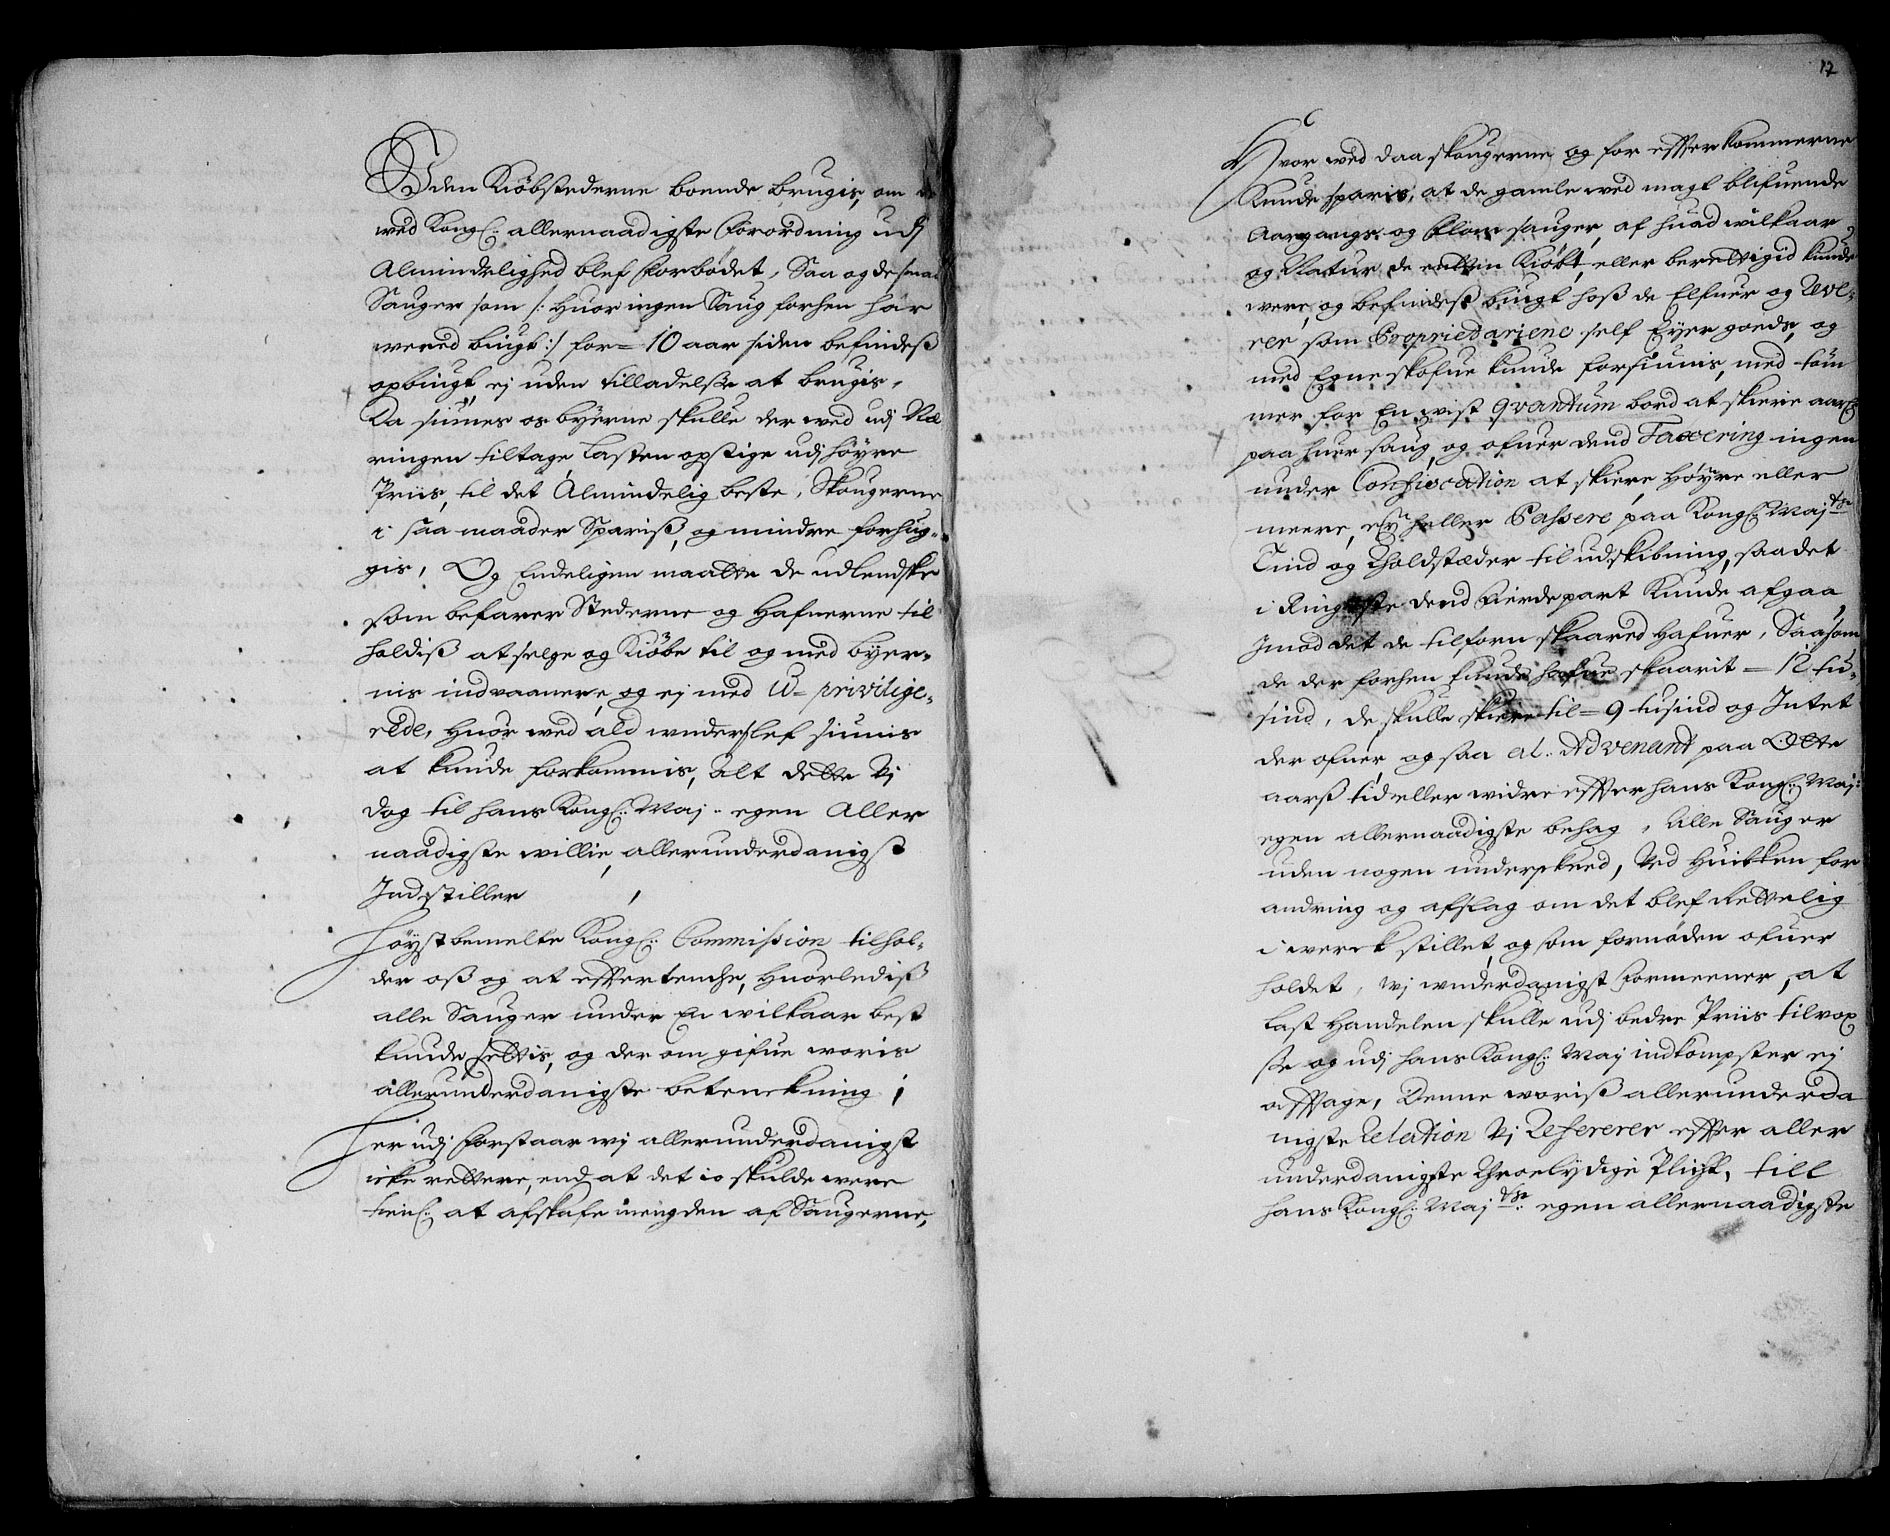 uden Kiøbstederne boende brugis, om de
wed Kongl: allernaadigste Forordning udj
Almindelighed blef Forbødet, Saa og de smaa
Sauger som /: Huor ingen Saug forhen har
wered biugt :/ for= 10 aar siden befindeß
opbiugt, ej uden tilladelße at brugis,
Da siunes os byerne skulle der wed udj Næ
ringen tiltage, Lasten opstige udj høyre
Priis, til det Almindelig beste, Skougerne
i saa maader Spariß, og mindre forhug-
gis, Og Endeligen maatte de udlendske
som befarer Stederne og Hafnerne til
holdiß at selge og Kiøbe til og med byer-
nis indvaanere, og ej med U= privilige-
rede, Huor wed ald wnderslef siunis
at kunde forkommis, alt dette Vj
dog til hans Kongl: Maj: egen Aller
naadigste willie, allerunderdanigst
Indstiller
Høystbemelte Kongl: Commission tilhol-
der oß og at effertenche, Huorlediß
alle Sauger under En wilkaar best
kunde settis, og der om gifue woris
allerunderdanigste betenckning ;
Her udj forstaar wj allerunderdanigst
icke rettere, end at det io skulde were
tienl: at afskafe mengden af Saugerne,
17
Hvor wed daa skougerne og for efferkommerne
kunde sparis, at de gamle wed magt blifuende
Aargangs og Flom sauger, af huad wilkaar
og Natur de enten Kiøbt, eller berettigid kunde
were, og befindeß biugt hoß de Elfuer og Reve-
rer som Proprietariene self Eyer goeds, og
med Egne skofue kunde forsiunis, med töm
mer for En wist qvantum bord at skiere aarl:
paa huer saug, og ofuer dend Taxering ingen
under Confiscation at skiere, Høyre eller
meere, ey heller Passere paa Kongl: Maj:ts
Tind og Tholdstæder til udskibning, saa det
i Ringeste dend Fierdepart kunde afgaa
Imod det de tilforn skaared Hafuer, Saasom
de der forhen kunde hafue skaarit = 12 tu-
sind, de skulle skiere til = 9 tusind og Intet
der ofuer, og saa al: Advenant paa Otte
aars tid eller widre effter hans Kongl: Maj:
egen allernaadigste behag, Alle Sauger
uden nogen underskeed, Ved Huilken for
andring og afslag om det blef Rettelig
i werck stillet, og som fornøden ofuer
holdet, wj wnderdanigst Formeener, at
Last Handelen skulle udj bedre Priis tilvox
ße og udj hans Kongl: Maj indkompster ej
afftage, Denne woriß allerunderda
nigste Relation Vj Refererer effter aller
underdanigste Throelydige Plicht, till
hans Kongl: Maj:ts: egen allernaadigste